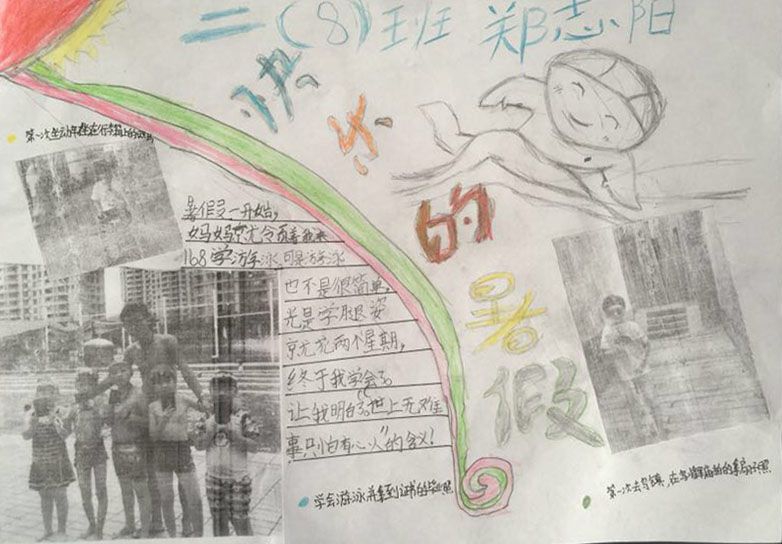 二（8）班 郑志阳
快乐的暑假
第一次坐动车坐在行李箱上的
暑假一开始,
妈妈就令着我来
168学游泳可是游泳
也不是很简单,
光是学腿姿
就花两个星期,
终于我学会了。
让我明白了“世上无难
事只怕有心人”的含义!
学会游泳并拿到证书的毕业照
第一次去乌镇,在